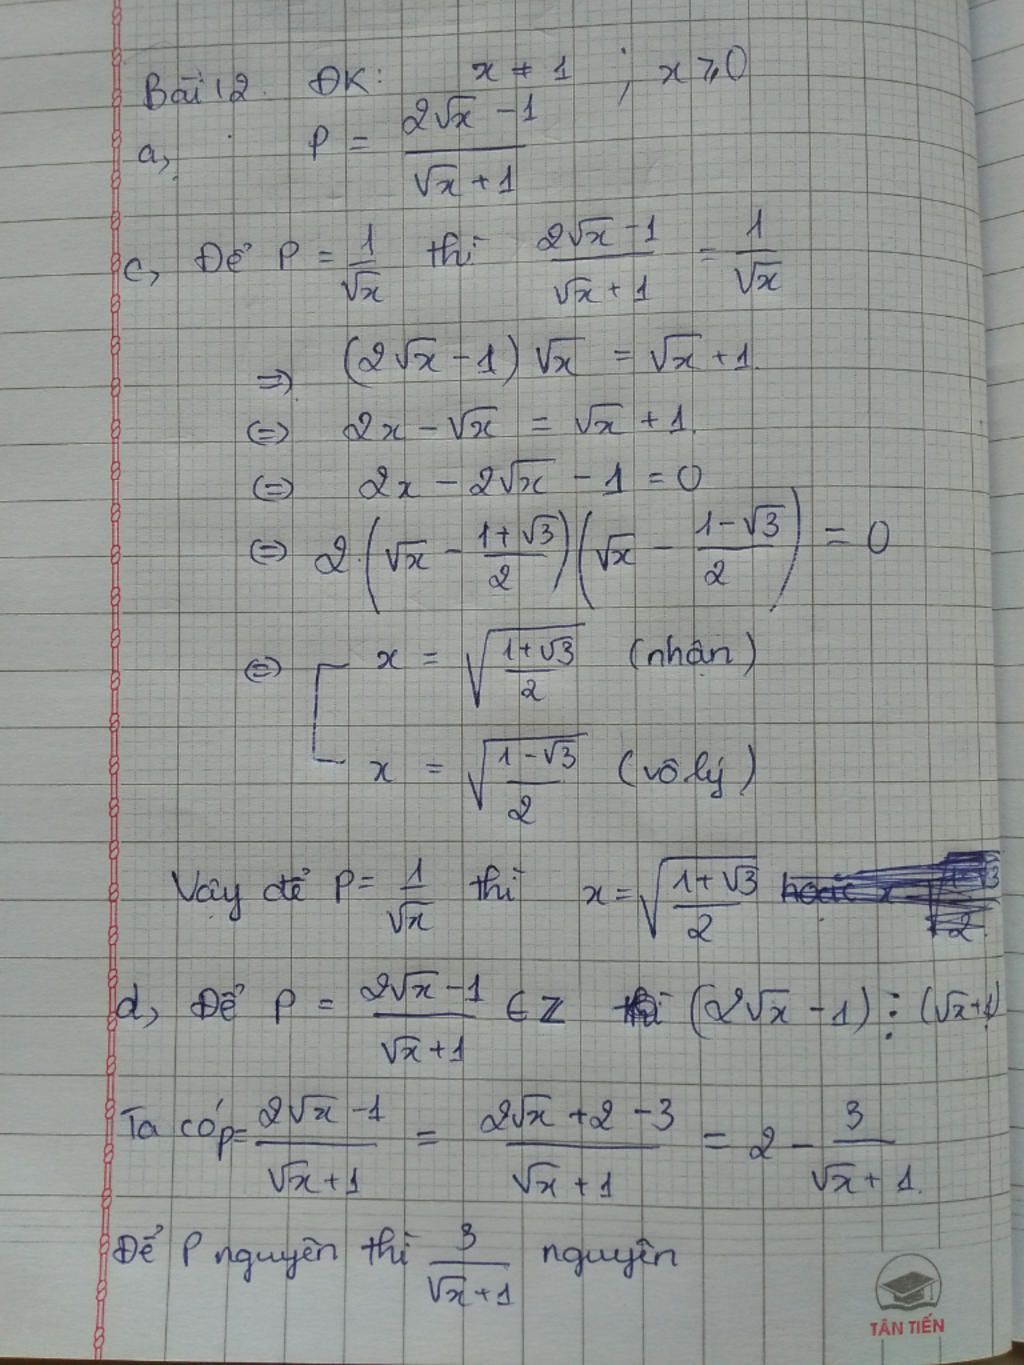 Bài 12. ĐK: x ≠ 1 ; x ⩾ 0
a, P = (2√x - 1)/(√x + 1)
c, Để P = 1/√x thì (2√x - 1)/(√x + 1) = 1/√x
⇒ (2√x - 1) √x = √x + 1.
(=) 2x - √x = √x + 1.
(=) 2x - 2√x - 1 = 0
(=) 2.(√x - (1+√3)/2)(√x - (1-√3)/2) = 0
(=) x = √((1+√3)/2) (nhận)
x = √((1-√3)/2) (vô lý)
Vậy để P = 1/√x thì x = √((1+√3)/2)
d, Để P = (2√x - 1)/(√x + 1) ∈ Z thì (2√x - 1) ⋮ (√x+1)
Ta có P = (2√x - 1)/(√x + 1) = (2√x + 2 - 3)/(√x + 1) = 2 - 3/(√x + 1).
Để P nguyên thì 3/(√x + 1) nguyên
TÂN TIẾN